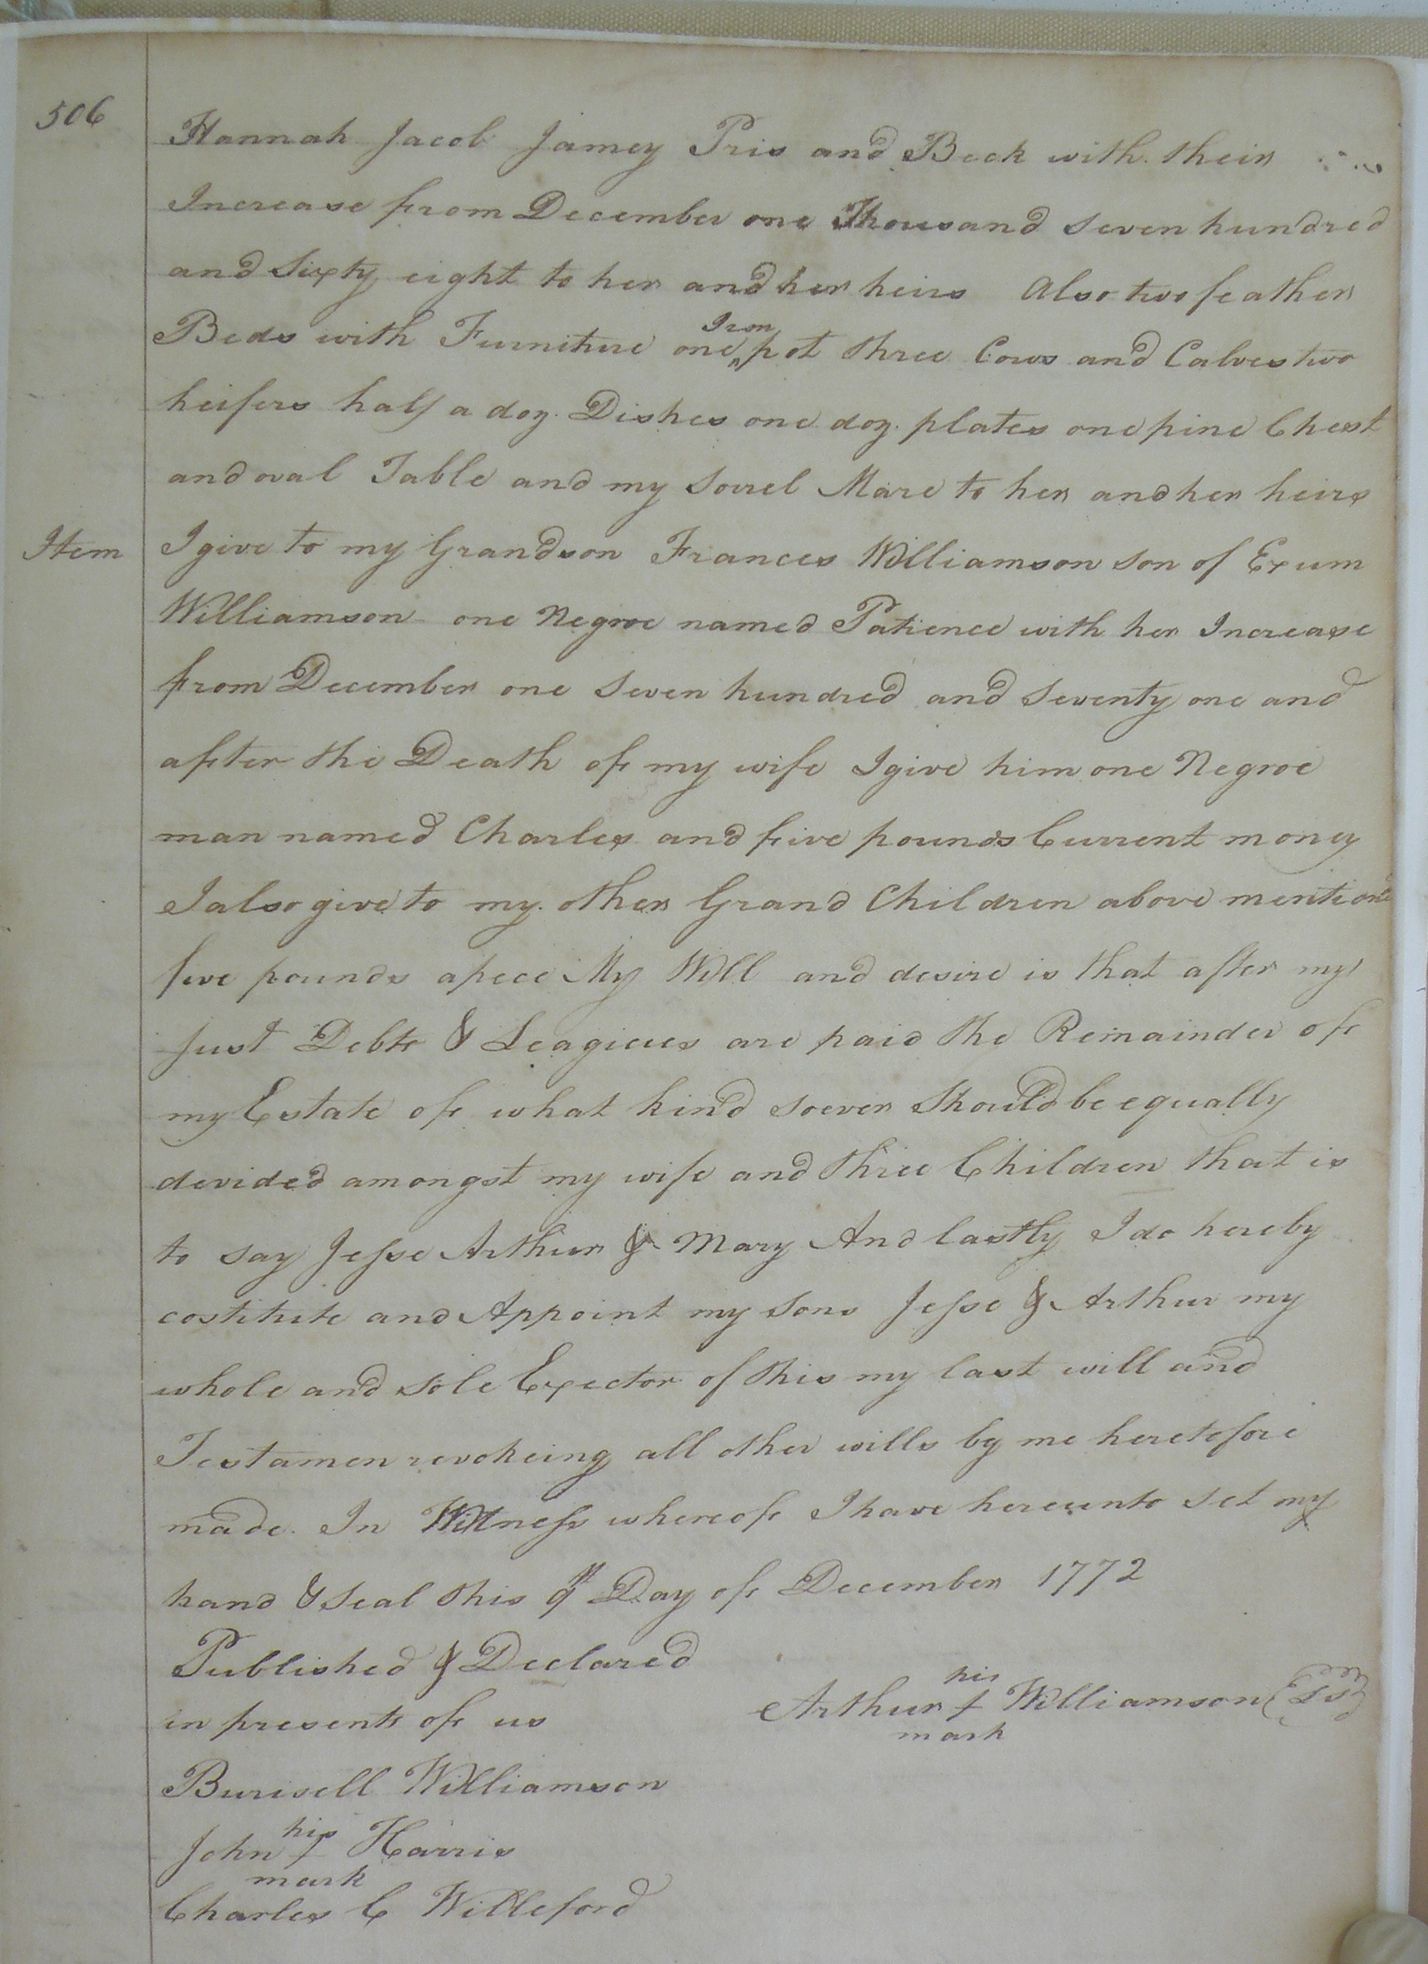 506
Hannah Jacob Jamey Pris and Beck with their
Increase from December one Thousand seven hundred
and Sixty eight to her and her heirs Also two feather
Beds with Furniture one Iron pot three Cows and Calves two
heifers half a doz. Dishes one doz. plates one pine Chest
and oval Table and my Sorrel Mare to her and her heirs
Item I give to my Grandson Frances Williamson son of Exum
Williamson one Negroe named Patience with her Increase
from December one seven hundred and seventy one and
after the Death of my wife I give him one Negroe
man named Charles and five pounds Current money
I also give to my other Grand Children above mentiond
five pounds apece My Will and desire is that after my
just Debts & Leagicies are paid the Remainder of
my Estate of what kind soever Should be equally
devided amongst my wife and three Children that is
to say Jesse Arthur & Mary And lastly I do hereby
costitute and Appoint my sons Jesse & Arthur my
whole and sole Exector of this my last will and
Testamen revokeing all other wills by me heretefore
made. In Witness whereof I have hereunto set my
hand & Seal this 9th Day of December 1772
Published & Declared
in presents of us
his
Arthur + Williamson (LS)
mark
Burwell Williamson
his
John + Harris
mark
Charles C Willeford